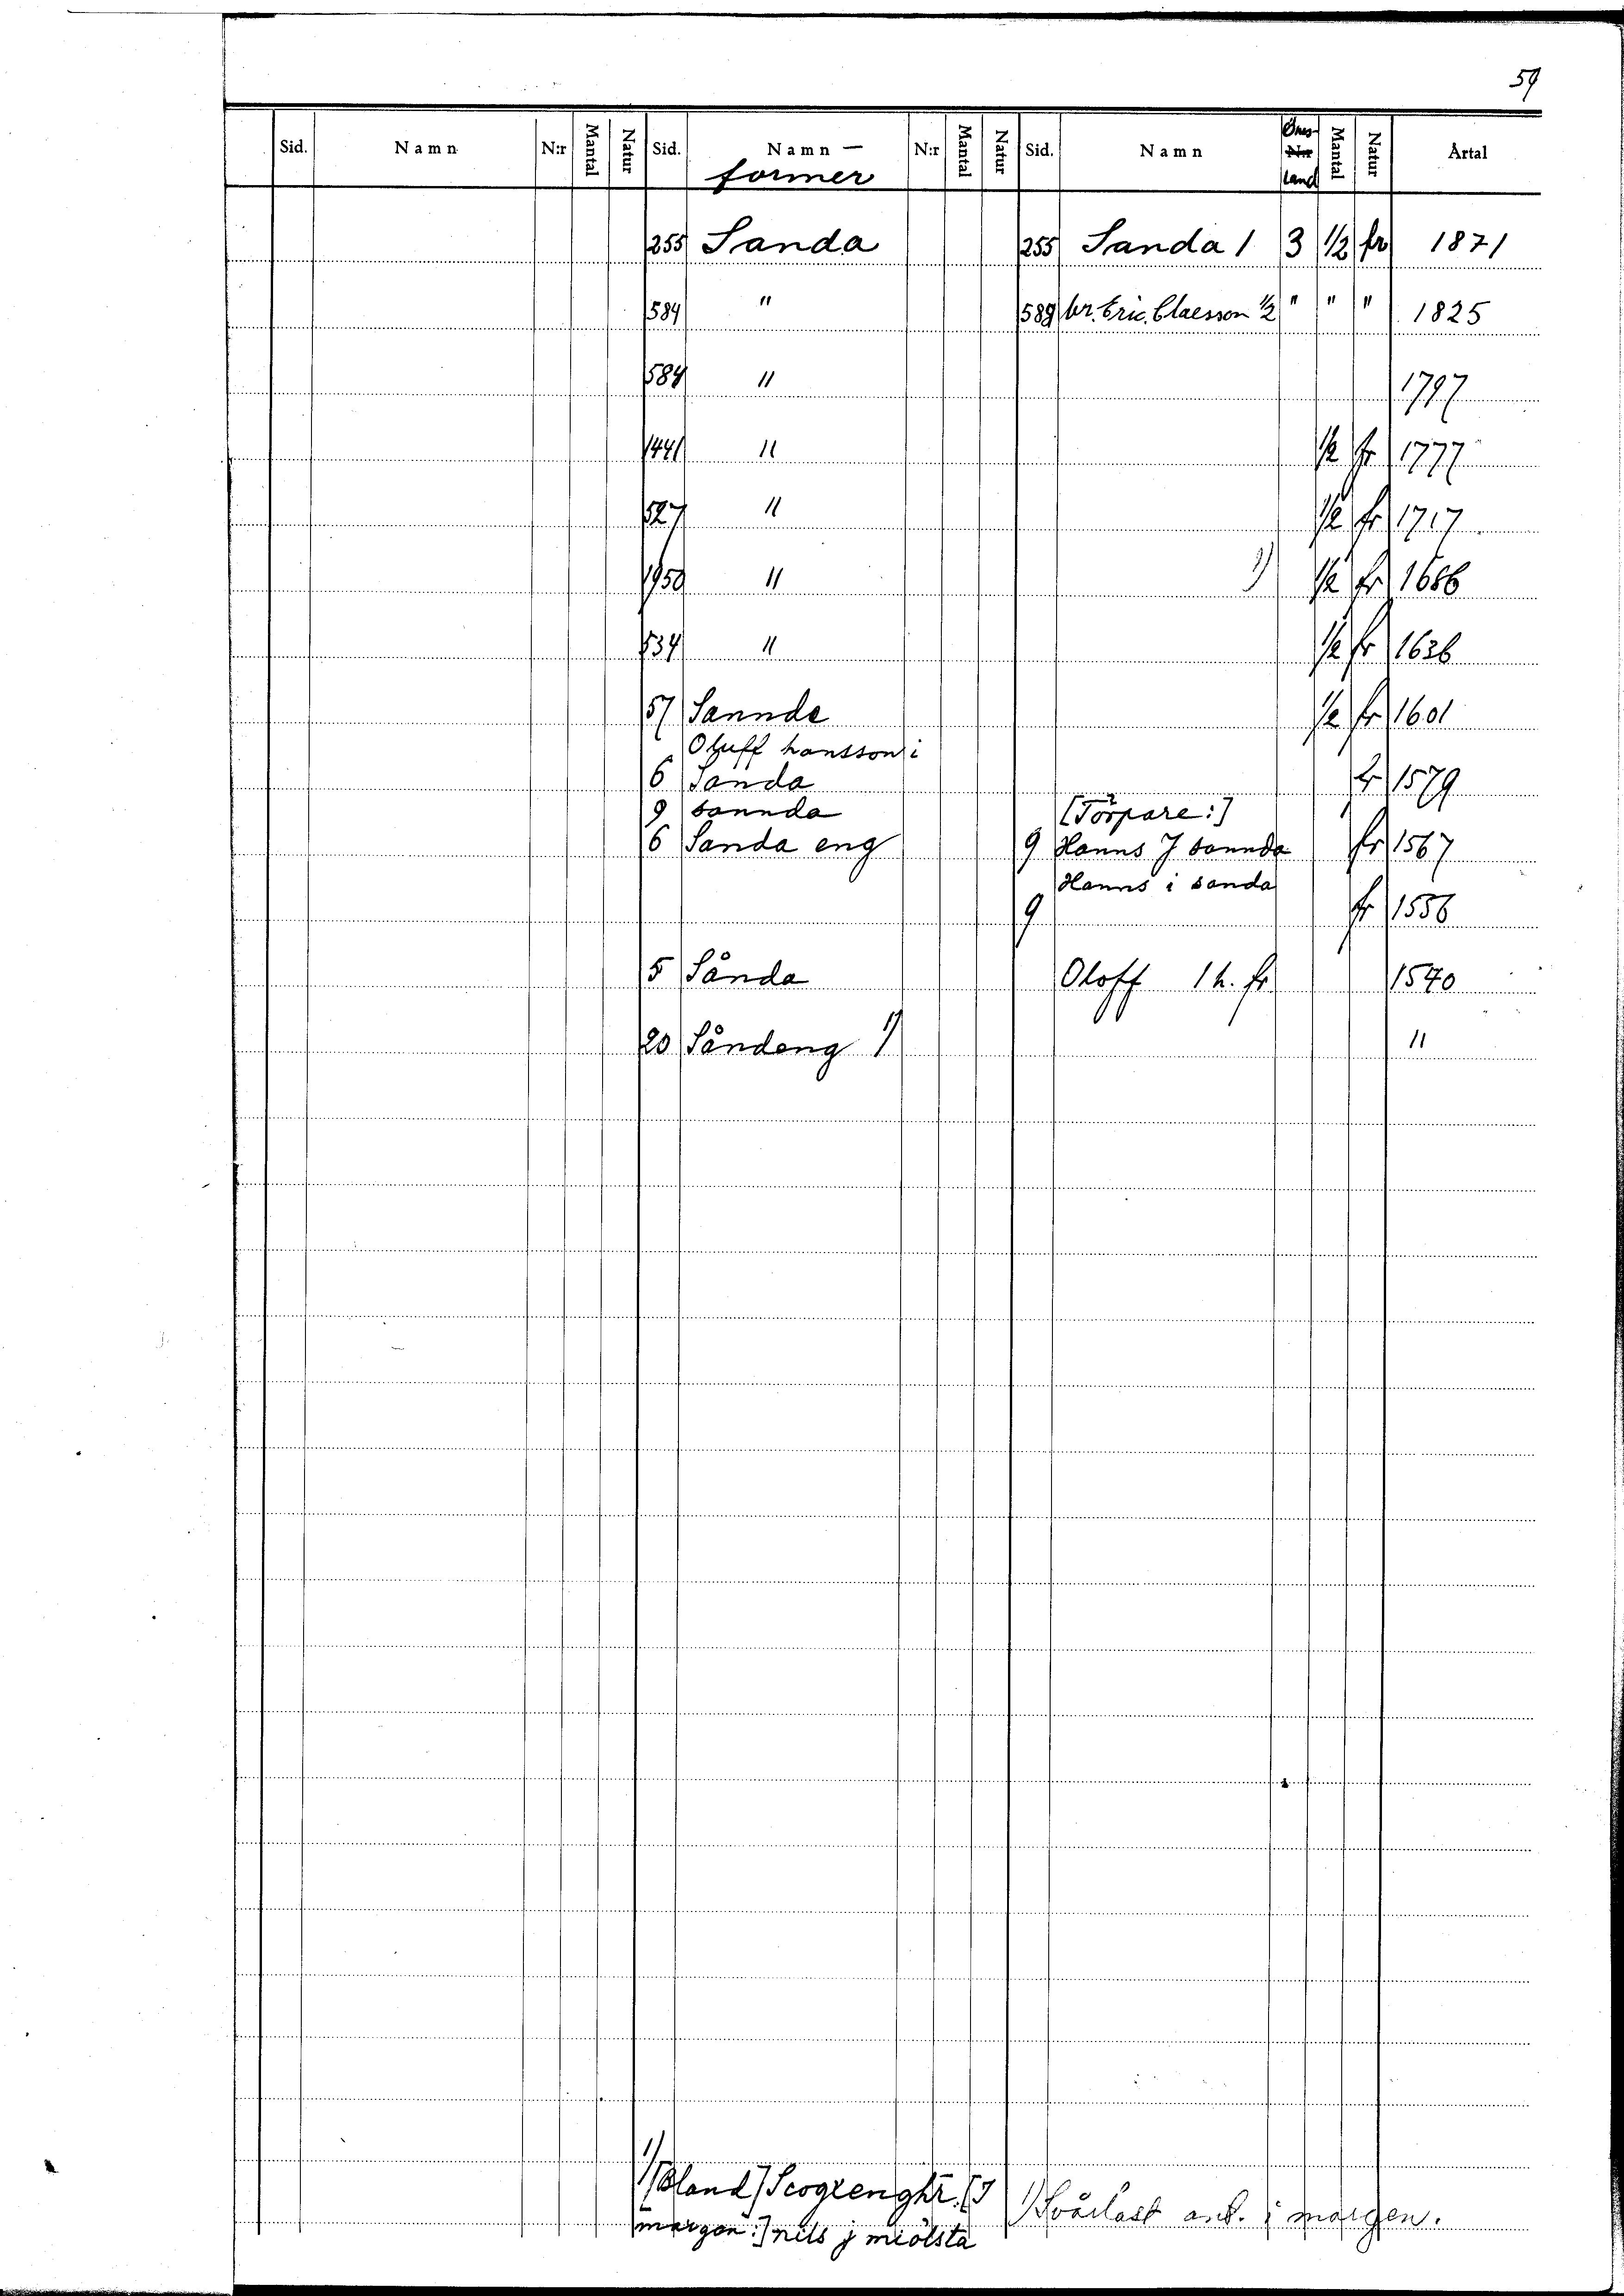 59
Sid. Namn N:r Mantal Natur Sid. Namn — former N:r Mantal Natur Sid. Namn Öres- N:r land Mantal Natur Årtal
255 Sanda 255 Sanda 1 3 1/2 fr 1871
584 " 589 br. Eric Claesson 1/2 " " " 1825
584 " 1797
1441 " 1/2 fr 1777
527 " 1/2 fr 1717
1950 " 1) 1/2 fr 1686
534 " 1/2 fr 1636
57 Sannde 1/2 fr 1601
Oluff hansson i
6 Sanda fr 1579
9 sannda [Torpare:]
6 Sanda eng 9 Hanns J sannda fr 1567
Hanns i sanda
9 fr 1556
5 Sånda Oloff 1 h. fr 1540
20 Såndeng 1) "
1) [Bland] Scogzenghr. [I
margen:] nils j miölsta
1) Svårläst ant. i margen.